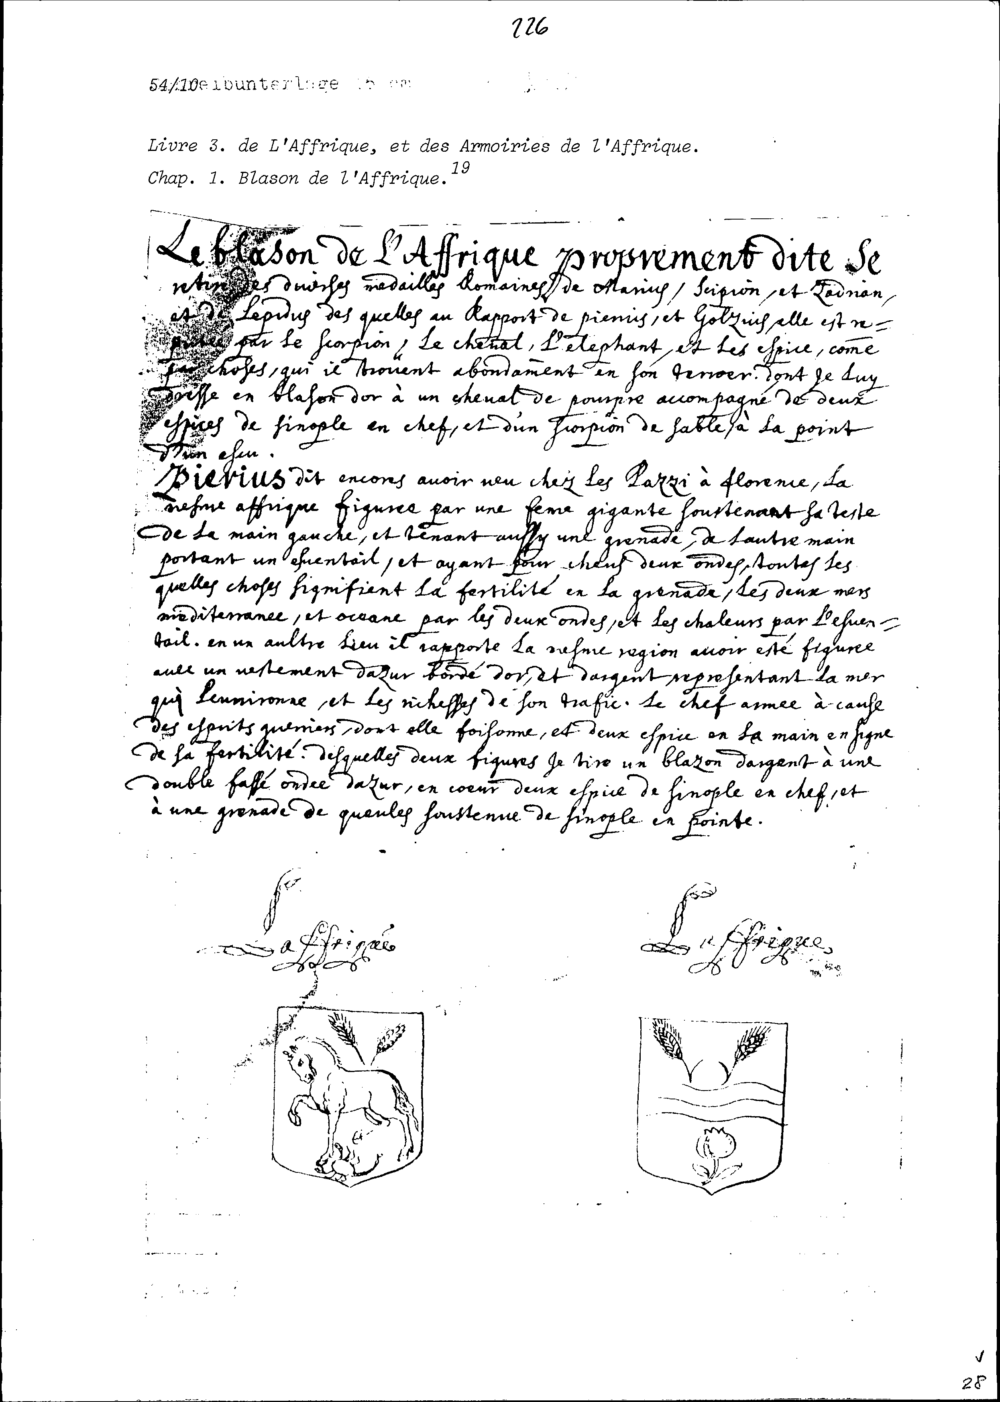 226
54/10
Livre 3. de L'Affrique, et des Armoiries de l'Affrique.
Chap. 1. Blason de l'Affrique.19
Le blason de L'Affrique proprement dite Se
retire des diverses medailles Romaines, de Marius, Scipion, et Hadrian,
et de Lepidus des quelles au Rapport de pierius, et Golzius, elle est re=
par Le scorpion, Le cheval, L'elephant, et Les espice, come
choses, qui se trouuent abondament en son terroer. Dont Je Luy
Dresse en blason dor à un cheual de pourpre accompagné de deux
espices de sinople en chef, et d'un scorpion de sable, à La point
D'un escu.
Pierius dit encores auoir ueu chez Les Pazzi à florence, La
mesme affrique figuree par une feme gigante soustenant sa teste
de La main gauche, et tenant aussy une grenade, de Lautre main
portant un esuentail, et ayant pour cheuf deux ondes, toutes Les
quelles choses signifient La fertilité en La grenade, Les deux mers
mediterranee, et oceane par les deux ondes, et Les chaleurs par L'esuen=
tail. en un aultre Lieu il rapporte La mesme region auoir esté figuree
auec un uestement dazur bordé dor, et dargent representant La mer
qui Leunironne, et Les richesses de son trafic. Le chef armee à cause
des esprits guerriers, dont elle foisonne, et deux espice en La main en signe
de sa fertilité. desquelles deux figures Je tire un blazon dargent à une
double fassé ondee dazur, en coeur deux espice de sinople en chef, et
à une grenade de gueules soustenue de sinople en pointe.
Laffrique
Laffrique
28